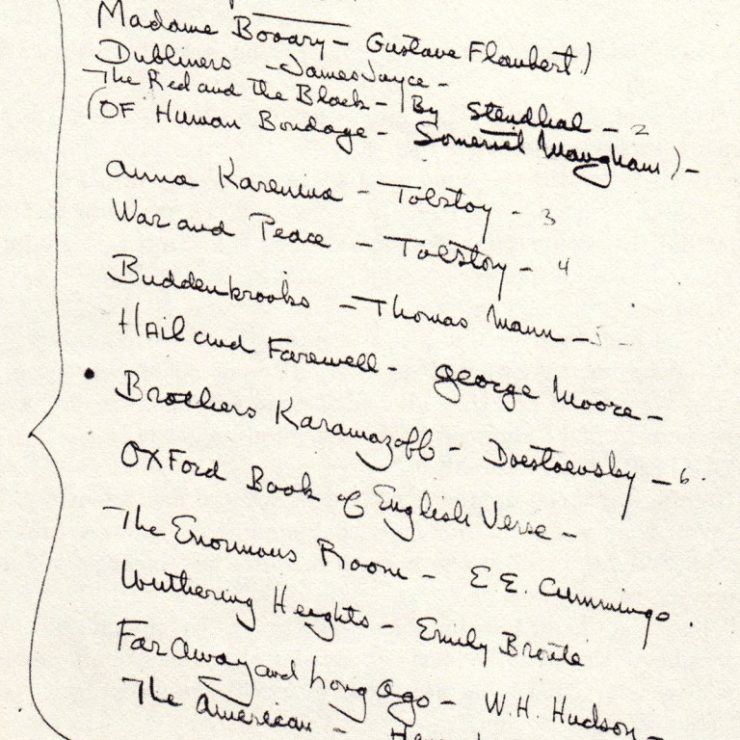 Madame Bovary – Gustave Flaubert)
Dubliners – James Joyce –
The Red and the Black – By Stendhal – 2
(OF Human Bondage – Somerset Maugham) –
Anna Karenina – Tolstoy – 3
War and Peace – Tolstoy – 4
Buddenbrooks – Thomas Mann – 5 –
Hail and Farewell – George Moore –
• Brothers Karamazoff – Doestoevsky – 6.
OXFord Book of English Verse –
The Enormous Room – E.E. Cummings.
Wuthering Heights – Emily Bronte
Far Away and Long Ago – W.H. Hudson –
The American –